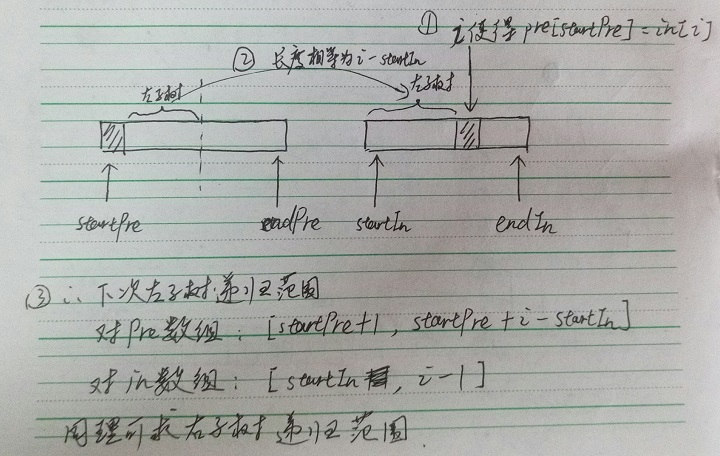 ① i使得pre[startPre]=in[i]
② 长度相等为i-startIn
左子树 左子树
startPre endPre startIn endIn
③ ∴下次左子树递归范围
对Pre数组：[startPre+1, startPre+i-startIn]
对in数组：[startIn, i-1]
同理可求右子树递归范围.